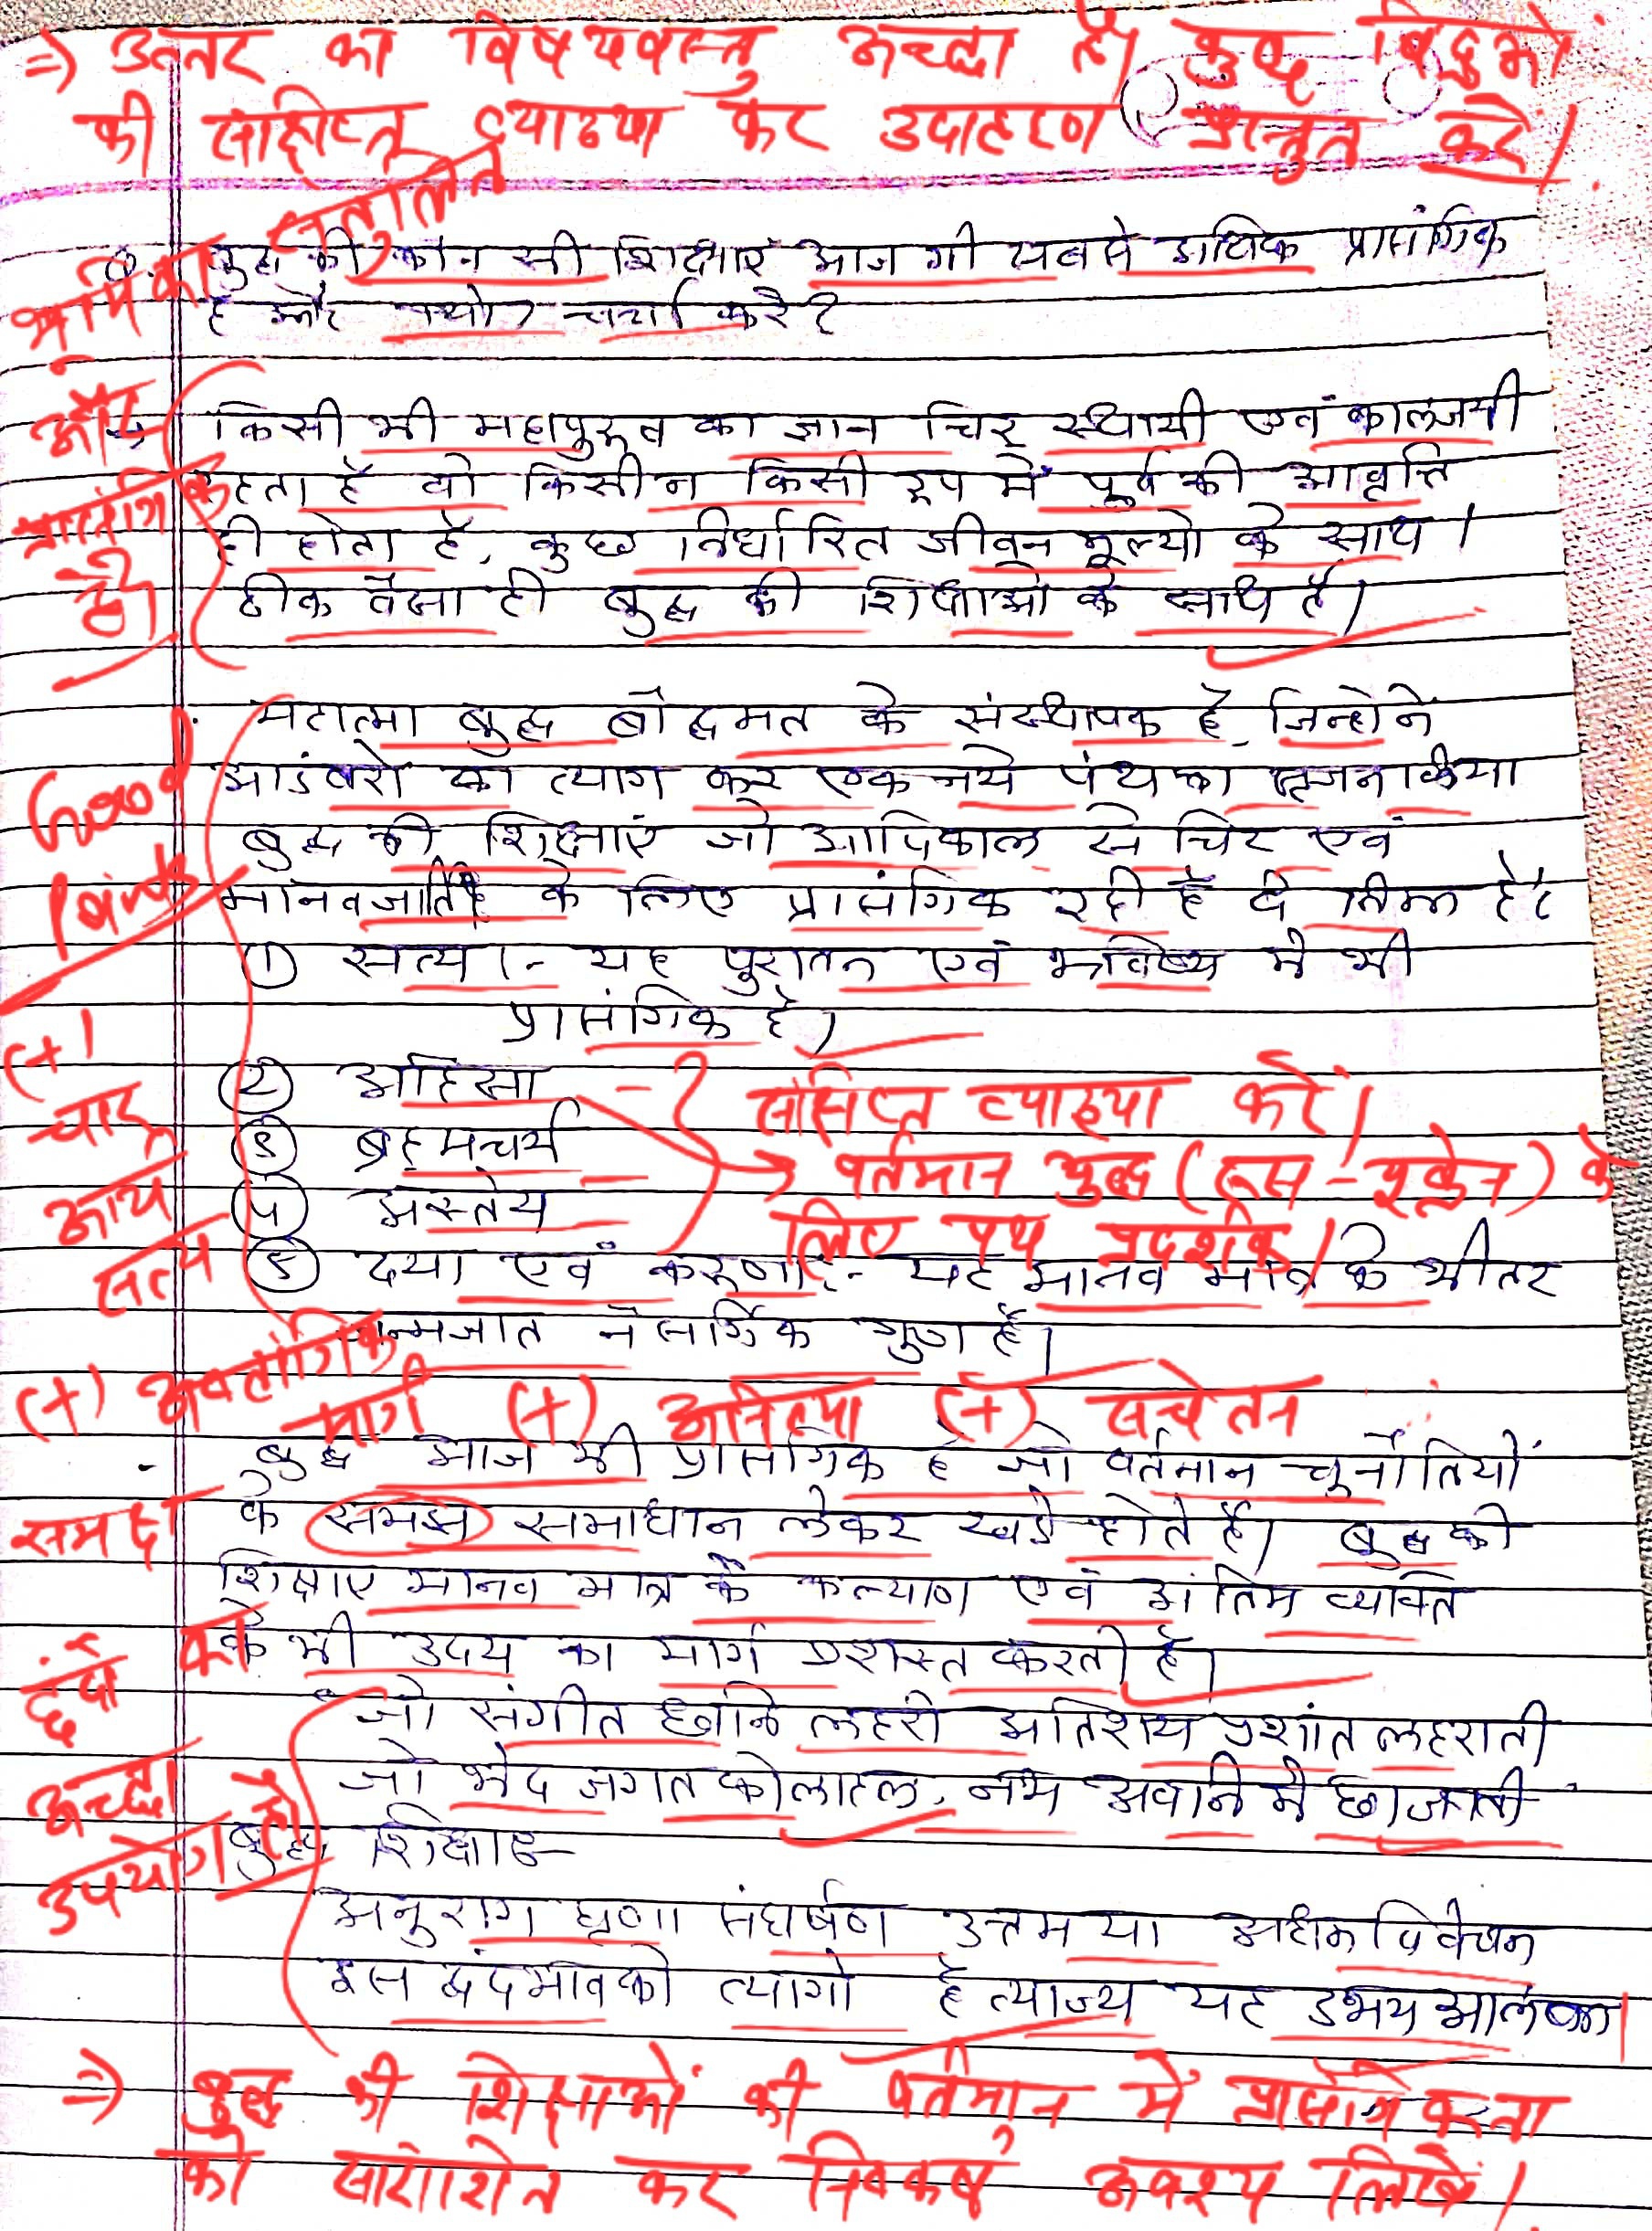 => उत्तर का विषयवस्तु अच्छा है। कुछ बिंदुओं
की संक्षिप्त व्याख्या कर उदाहरण प्रस्तुत करें।
भूमिका संतुलित
और
प्रासंगिक
है।
Q. बुद्ध की कौन सी शिक्षाएं आज भी सबसे अधिक प्रासंगिक
है और क्यो? चर्चा करे?
किसी भी महापुरुष का ज्ञान चिर स्थायी एवं कालजयी
रहता है वो किसी न किसी रूप में पूर्व की आवृत्ति
ही होता है, कुछ निर्धारित जीवन मूल्यो के साथ।
ठीक वैसा ही बुद्ध की शिक्षाओ के साथ है।
Good
Points
महात्मा बुद्ध बौद्धमत के संस्थापक है, जिन्होने
आडंबरो का त्याग कर एक नये पंथ का सृजन किया
बुद्ध की शिक्षाएं जो आदिकाल से चिर एवं
मानवजाति के लिए प्रासंगिक रही है वे निम्न है:
① सत्य :- यह पुरातन एवं भविष्य मे भी
प्रासंगिक है।
② अहिंसा
③ ब्रह्मचर्य
④ अस्तेय
- ? संक्षिप्त व्याख्या करें।
→ वर्तमान युद्ध (रूस-यूक्रेन) के
लिए पथ प्रदर्शक।
(+)
चार
आर्य
सत्य
⑤ दया एवं करुणा:- यह मानव मात्र के भीतर
जन्मजात नैसर्गिक गुण है।
(+) अष्टांगिक
मार्ग (+) अनित्या (+) सचेतन
बुद्ध आज भी प्रासंगिक है जो वर्तमान चुनौतियों
के समझ समाधान लेकर खडे होते है। बुद्ध की
समक्ष
शिक्षाए मानव मात्र के कल्याण एवं अंतिम व्यक्ति
के भी उदय का मार्ग प्रशस्त करती है।
छंदों का
अच्छा
उपयोग है।
जो संगीत ध्वनि लहरी अतिशय प्रशांत लहराती
जो भेद जगत कोलाहल, नभ अवनि मे छा जाती
बुद्ध शिक्षाए-
अनुराग घृणा संघर्षण उत्तम या अधम विवेचन
इस द्वंदभाव को त्यागो है त्याज्य यह उभय
=> बुद्ध की शिक्षाओं की वर्तमान में प्रासंगिकता
को सारांशित कर निष्कर्ष अवश्य लिखें।